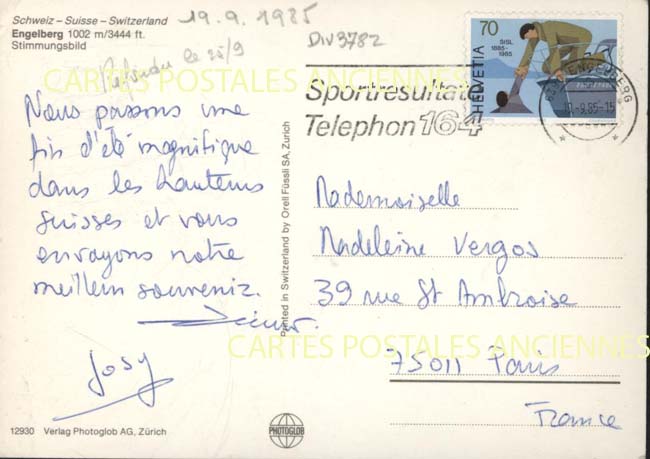 Schweiz – Suisse – Switzerland
Engelberg 1002 m/3444 ft.
Stimmungsbild
19.9.1985
Répondu le 25/9
Div3782
70
SISL
1885-
1985
HELVETIA
ENGELBERG
-9.85-15
Sportresultate
Telephon 164
CARTES POSTALES ANCIENNES
Nous passons une
fin d'été magnifique
dans les hauteurs
suisses et vous
envoyons notre
meilleur souvenir.
Josy
Printed in Switzerland by Orell Füssli SA, Zurich
Mademoiselle
Madeleine Vergos
39 rue St Ambroise
75011 Paris
France
CARTES POSTALES ANCIENNES
12930 Verlag Photoglob AG, Zürich
PHOTOGLOB